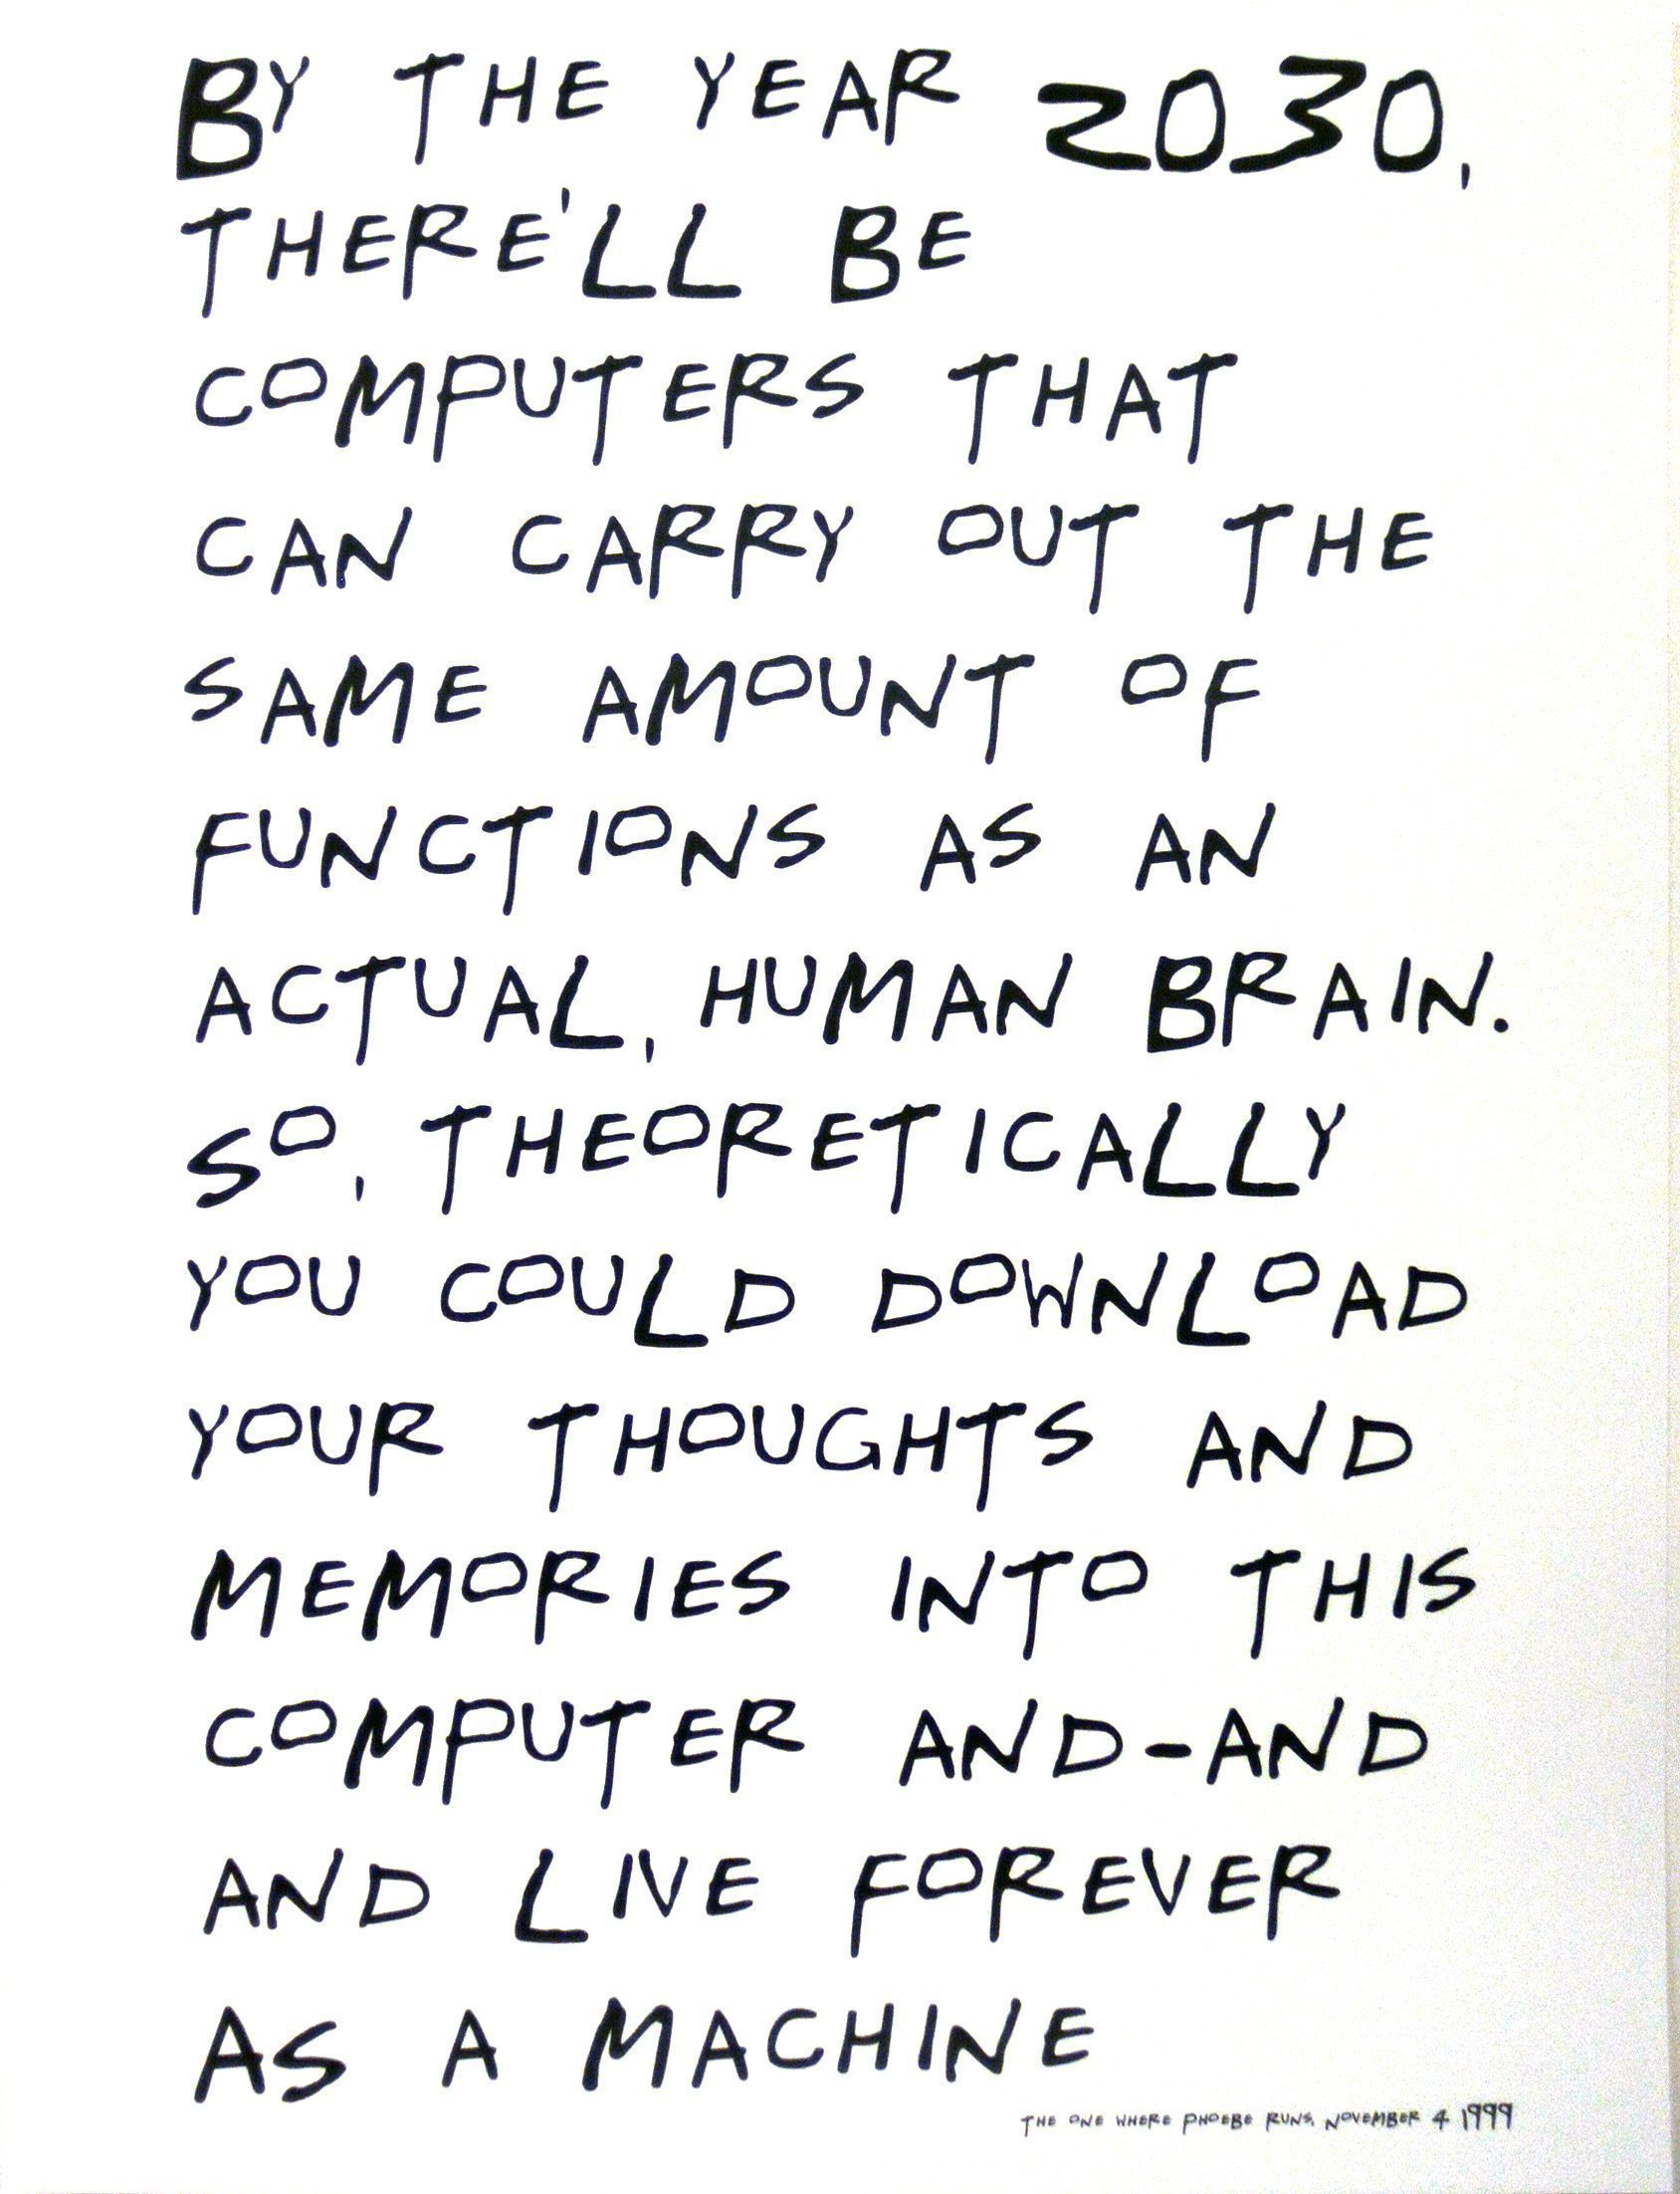 BY THE YEAR 2030,
THERE'LL BE
COMPUTERS THAT
CAN CARRY OUT THE
SAME AMOUNT OF
FUNCTIONS AS AN
ACTUAL, HUMAN BRAIN.
SO, THEORETICALLY
YOU COULD DOWNLOAD
YOUR THOUGHTS AND
MEMORIES INTO THIS
COMPUTER AND-AND
AND LIVE FOREVER
AS A MACHINE
THE ONE WHERE PHOEBE RUNS, NOVEMBER 4 1999